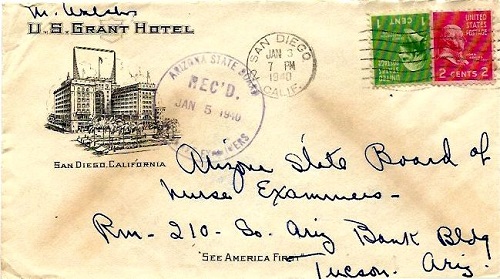 U.S. GRANT HOTEL
SAN DIEGO, CALIFORNIA
SAN DIEGO
JAN 3
7 PM
1940
CALIF.
ARIZONA STATE BOARD
REC'D.
JAN 5 1940
1 CENT 1
UNITED STATES POSTAGE
2 CENTS 2
Arizona State Board of
Nurse Examiners -
Rm - 210 - So. Ariz Bank Bldg
"SEE AMERICA FIRST"
Tucson. Ariz